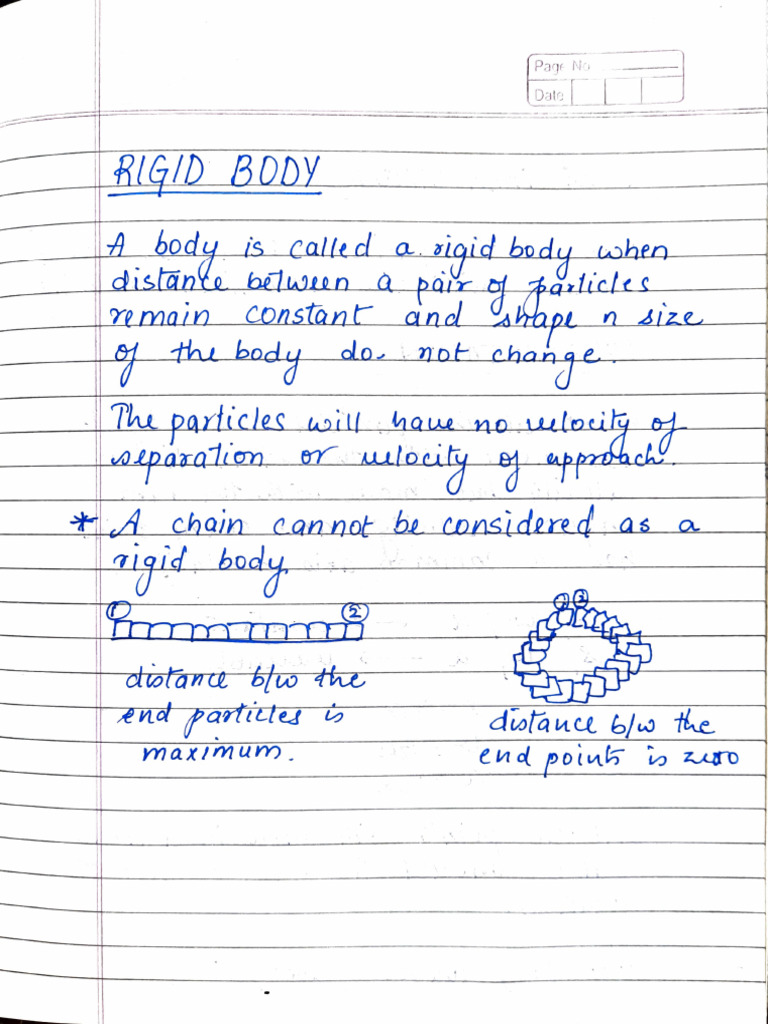 Page No
Date
RIGID BODY
A body is called a rigid body when
distance between a pair of particles
remain constant and shape n size
of the body do not change.
The particles will have no velocity of
separation or velocity of approach.
* A chain cannot be considered as a
rigid body.
1 2
1 2
distance b/w the
end particles is
maximum.
distance b/w the
end points is zero